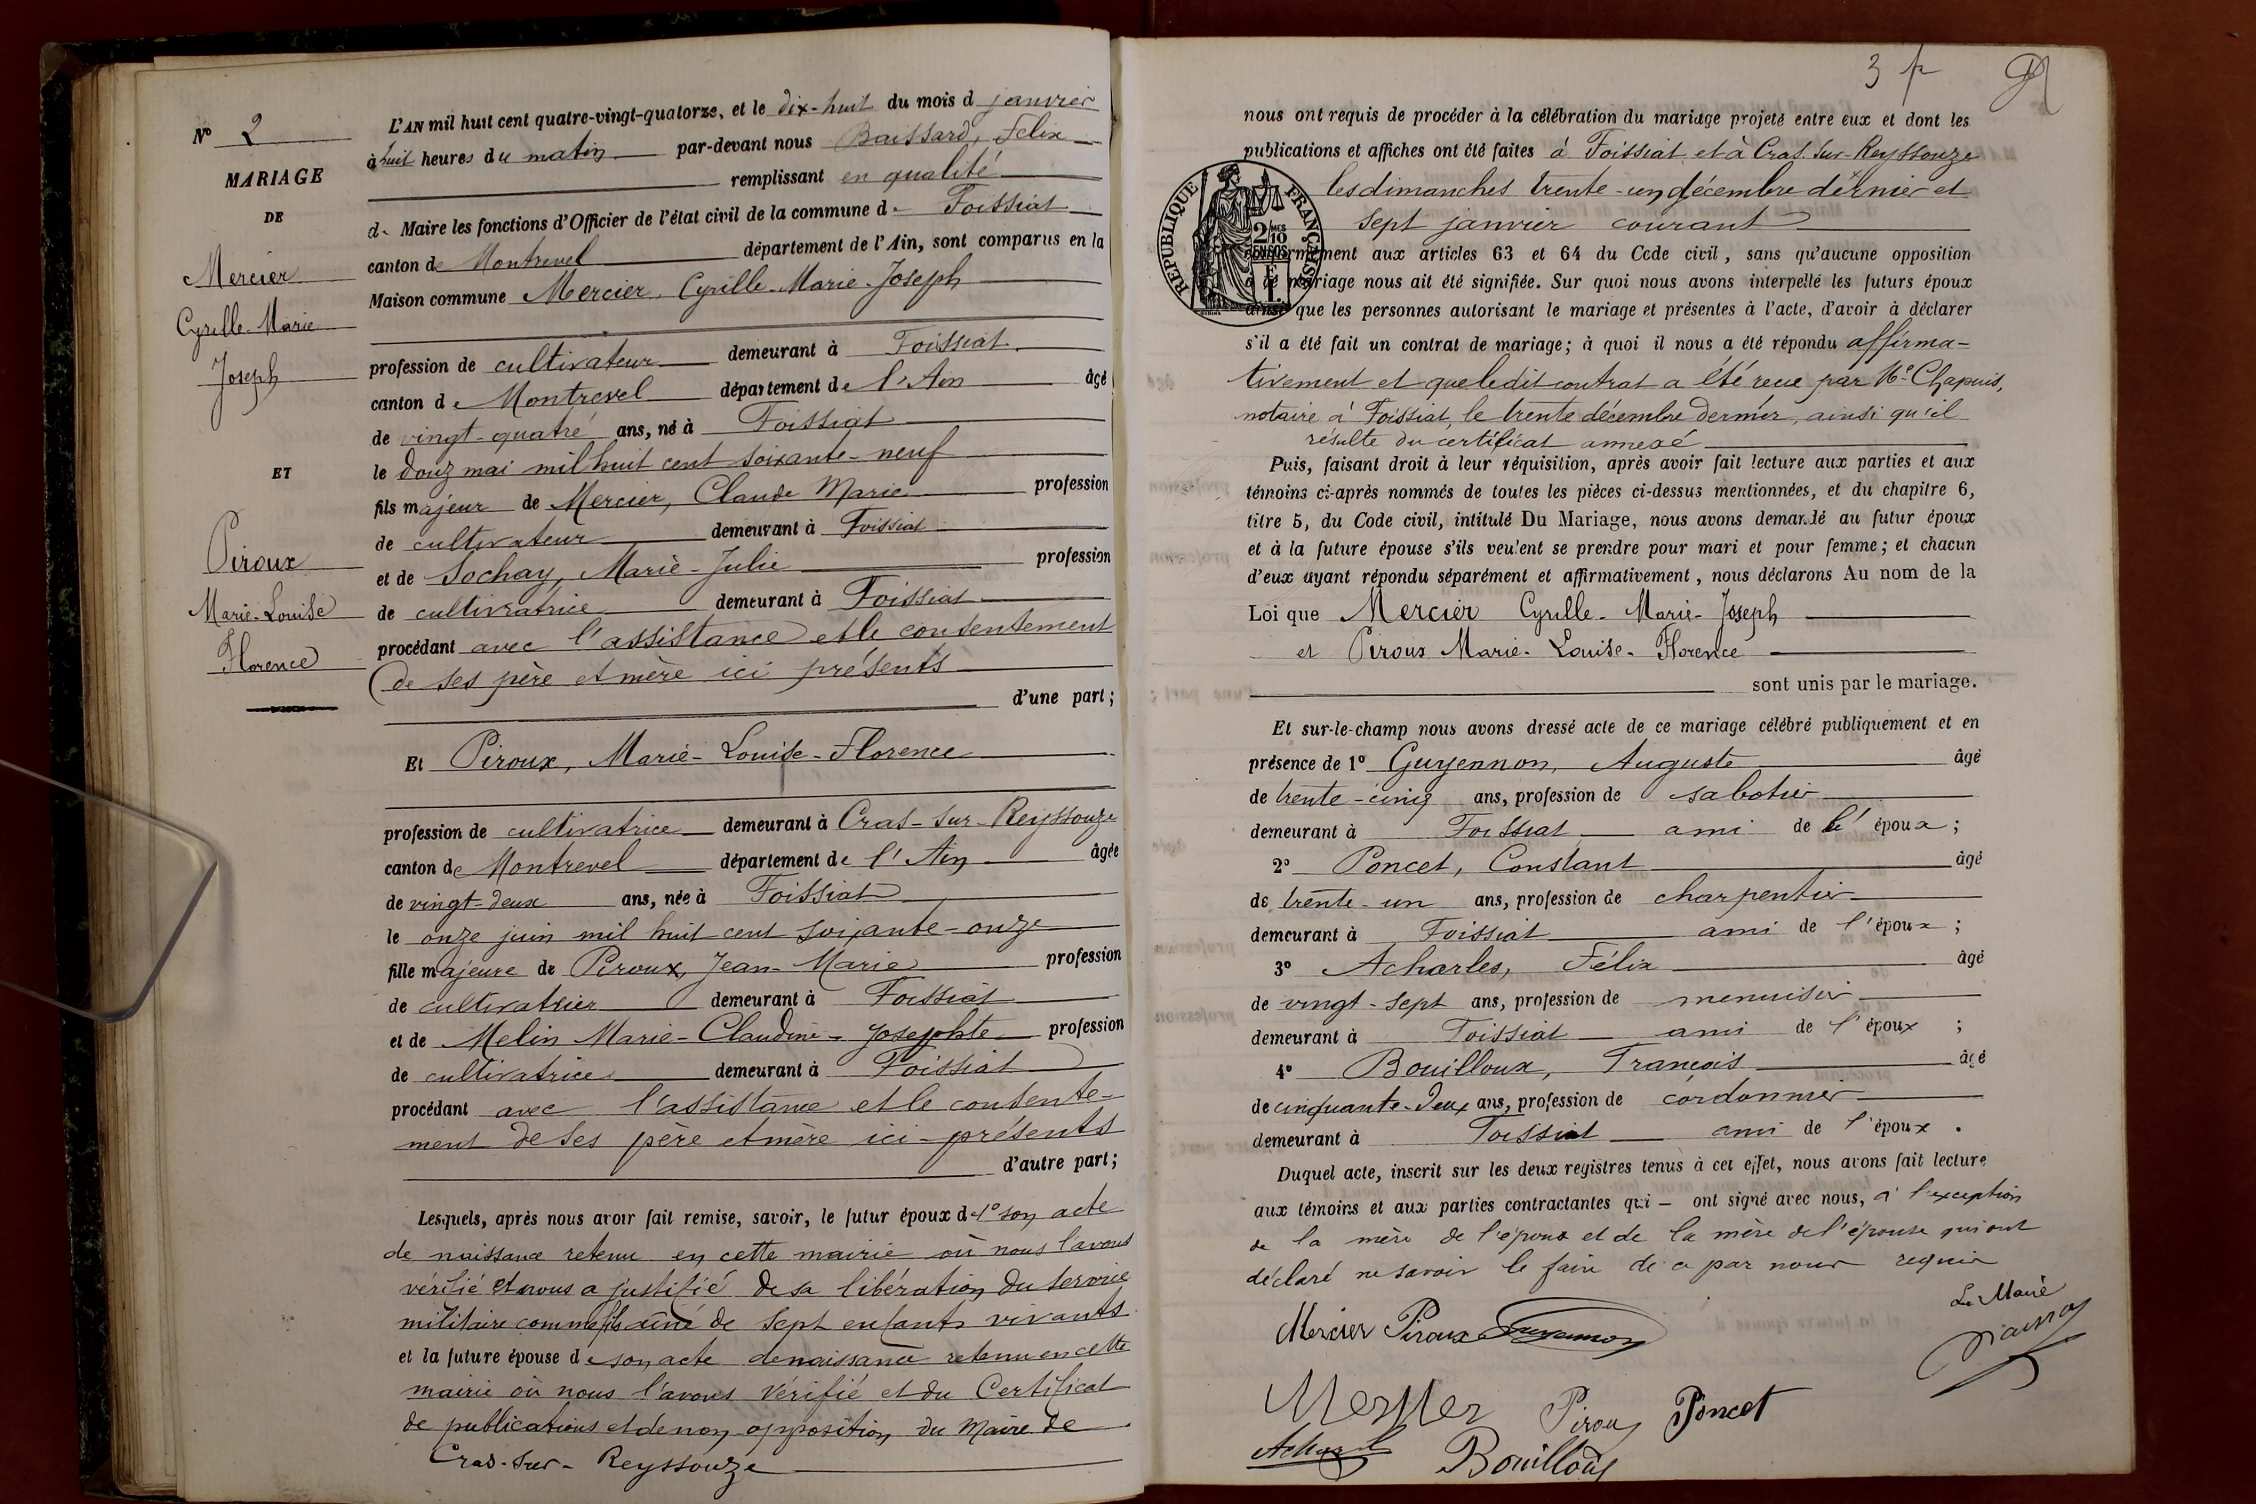 N° 2
MARIAGE
DE
Mercier
Cyrille-Marie
Joseph
ET
Piroux
Marie-Louise
Florence
L'AN mil huit cent quatre-vingt-quatorze, et le dix-huit du mois d janvier
à huit heures du matin par-devant nous Baissard, Felix
remplissant en qualité
de Maire les fonctions d'Officier de l'état civil de la commune de Foissiat
canton de Montrevel département de l'Ain, sont comparus en la
Maison commune Mercier, Cyrille-Marie-Joseph
profession de cultivateur demeurant à Foissiat
canton de Montrevel département de l'Ain âgé
de vingt-quatre ans, né à Foissiat
le douz mai mil huit cent soixante-neuf
fils majeur de Mercier, Claude Marie profession
de cultivateur demeurant à Foissiat
et de Sochay, Marie-Julie profession
de cultivatrice demeurant à Foissiat
procédant avec l'assistance et le consentement
de ses père et mère ici présents
d'une part;
Et Piroux, Marie-Louise-Florence
profession de cultivatrice demeurant à Cras-sur-Reyssouze
canton de Montrevel département de l'Ain âgée
de vingt-deux ans, née à Foissiat
le onze juin mil huit cent soixante-onze
fille majeure de Piroux, Jean-Marie profession
de cultivateur demeurant à Foissiat
et de Melin Marie-Claudine-Josephte profession
de cultivatrice demeurant à Foissiat
procédant avec l'assistance et le consente-
ment de ses père et mère ici-présents
d'autre part;
Lesquels, après nous avoir fait remise, savoir, le futur époux de 1° son acte
de naissance retenu en cette mairie où nous l'avons
vérifié et nous a justifié de sa libération du service
militaire comme fils aîné de sept enfants vivants
et la future épouse de son acte de naissance retenu en cette
mairie où nous l'avons vérifié et du Certificat
de publications et de non opposition du Maire de
Cras-sur-Reyssouze
3 f
nous ont requis de procéder à la célébration du mariage projeté entre eux et dont les
publications et affiches ont été faites à Foissiat et à Cras-sur-Reyssouze
les dimanches trente-un décembre dernier et
sept janvier courant
RÉPUBLIQUE FRANÇAISE
2/10
EN SUS
conformément aux articles 63 et 64 du Code civil, sans qu'aucune opposition
à ce mariage nous ait été signifiée. Sur quoi nous avons interpellé les futurs époux
ainsi que les personnes autorisant le mariage et présentes à l'acte, d'avoir à déclarer
s'il a été fait un contrat de mariage; à quoi il nous a été répondu affirma-
tivement et que ledit contrat a été reçu par Me Chapuis,
notaire à Foissiat, le trente décembre dernier, ainsi qu'il
résulte du certificat annexé
Puis, faisant droit à leur réquisition, après avoir fait lecture aux parties et aux
témoins ci-après nommés de toutes les pièces ci-dessus mentionnées, et du chapitre 6,
titre 5, du Code civil, intitulé Du Mariage, nous avons demandé au futur époux
et à la future épouse s'ils veulent se prendre pour mari et pour femme; et chacun
d'eux ayant répondu séparément et affirmativement, nous déclarons Au nom de la
Loi que Mercier Cyrille-Marie-Joseph
et Piroux Marie-Louise-Florence
sont unis par le mariage.
Et sur-le-champ nous avons dressé acte de ce mariage célébré publiquement et en
présence de 1° Guyennon, Auguste âgé
de trente-cinq ans, profession de sabotier
demeurant à Foissiat ami de l' époux;
2° Poncet, Constant âgé
de trente-un ans, profession de charpentier
demeurant à Foissiat ami de l'époux;
3° Acharles, Félix âgé
de vingt-sept ans, profession de menuisier
demeurant à Foissiat ami de l'époux;
4° Bouilloux, François âgé
de cinquante-deux ans, profession de cordonnier
demeurant à Foissiat ami de l'époux.
Duquel acte, inscrit sur les deux registres tenus à cet effet, nous avons fait lecture
aux témoins et aux parties contractantes qui - ont signé avec nous, à l'exception
de la mère de l'époux et de la mère de l'épouse qui ont
déclaré ne savoir le faire de ce par nous requis
Le Maire
Mercier Piroux Guyennon
Baissard
Mercier Piroux Poncet
Acharles Bouilloux